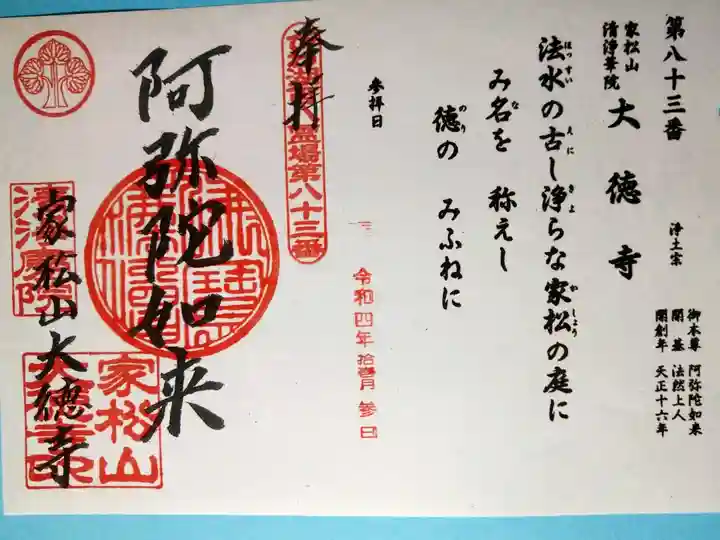 第八十三番
家松山
清浄華院
大徳寺
浄土宗
御本尊 阿弥陀如来
開基 法然上人
開創年 天正十六年
法水の古し浄らな家松の庭に
ほっすい えに きよ かしょう
み名を 称えし
な
徳の みふねに
のり
参拝日
令和四年 拾壱月 参日
奉拝
霊場第八十三番
阿弥陀如来
家松山大徳寺
家松山